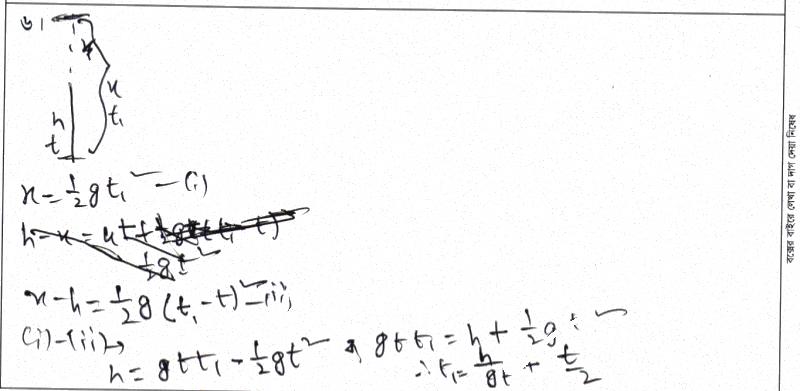 ৬।
x
t₁
h
t
x = ½gt₁² — (i)
x - h = ½g(t₁ - t)² — (ii)
(i) - (ii) →
h = gtt₁ - ½gt²
gtt₁ = h + ½gt²
∴ t₁ = h/gt + t/2
বক্সের বাইরে লেখা বা দাগ দেয়া নিষেধ